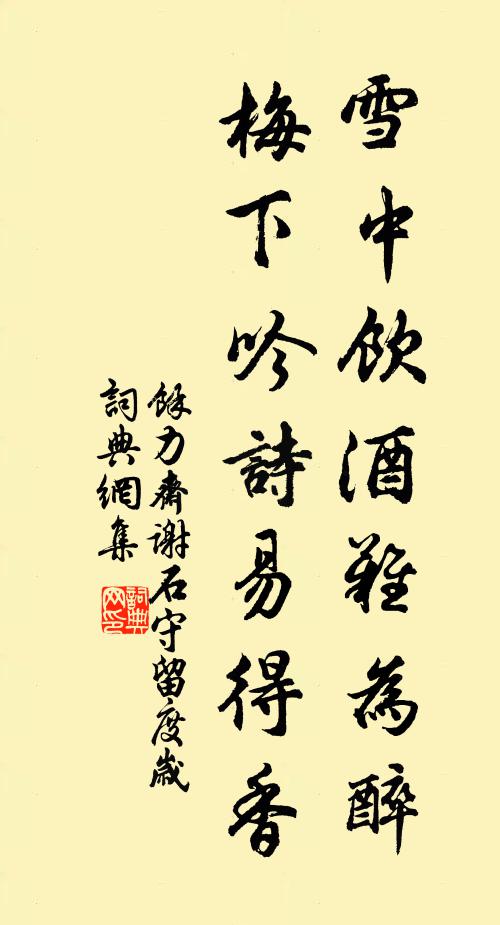 雪中飲酒難為醉
梅下吟詩易得香
餘力齋謝石守留度歲
詞典網集
詞典网印